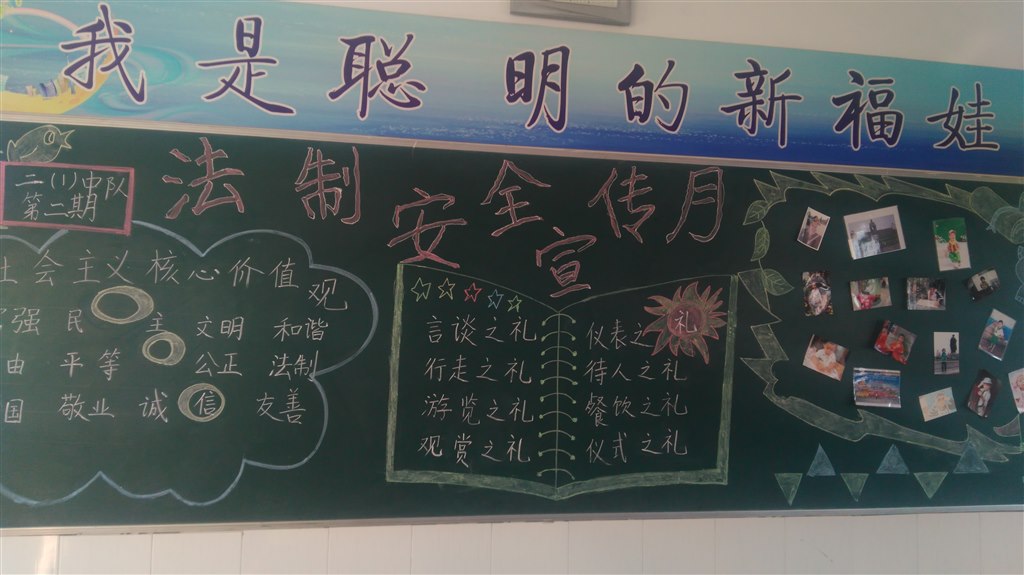 我是聪明的新福娃
二(1)中队
第二期
法制安全宣传月
社会主义核心价值观
富强 民主 文明 和谐
由 平等 公正 法制
国 敬业 诚信 友善
言谈之礼
行走之礼
游览之礼
观赏之礼
礼
仪表之
待人之礼
餐饮之礼
仪式之礼